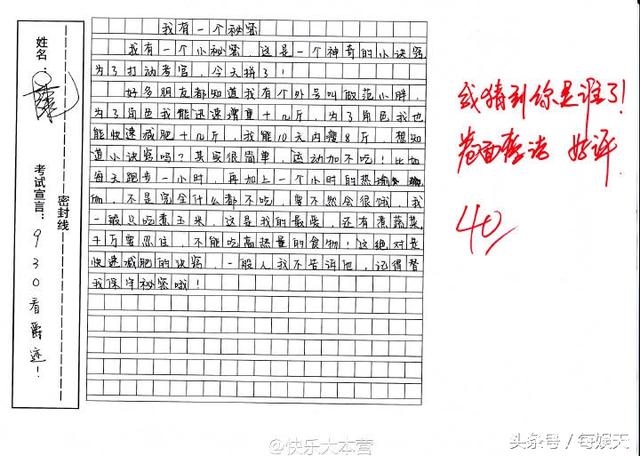 我有一个秘密
我有一个小秘密，这是一个神奇的小诀窍，
为了打动考官，今天拼了！
好多朋友都知道我有个外号叫做范小胖，
为了角色我能迅速增重十几斤，为了角色我也
能快速减肥十几斤，我能10天内瘦8斤，想知
道小诀窍吗？其实很简单，运动加不吃！比如
每天跑步一小时，再加上一个小时的热瑜
伽，不是完全什么都不吃，要不然会很饿，我
一般只吃煮玉米，这是我的最爱，还有煮蔬菜，
千万要忍住，不能吃高热量的食物！这绝对是
快速减肥的诀窍，一般人我不告诉他，记得替
我保守秘密哦！
姓名：
考试宣言：930看爵迹！
密封线
我猜到你是谁了！
卷面整洁 好评
40
@快乐大本营
头条号/每娱天